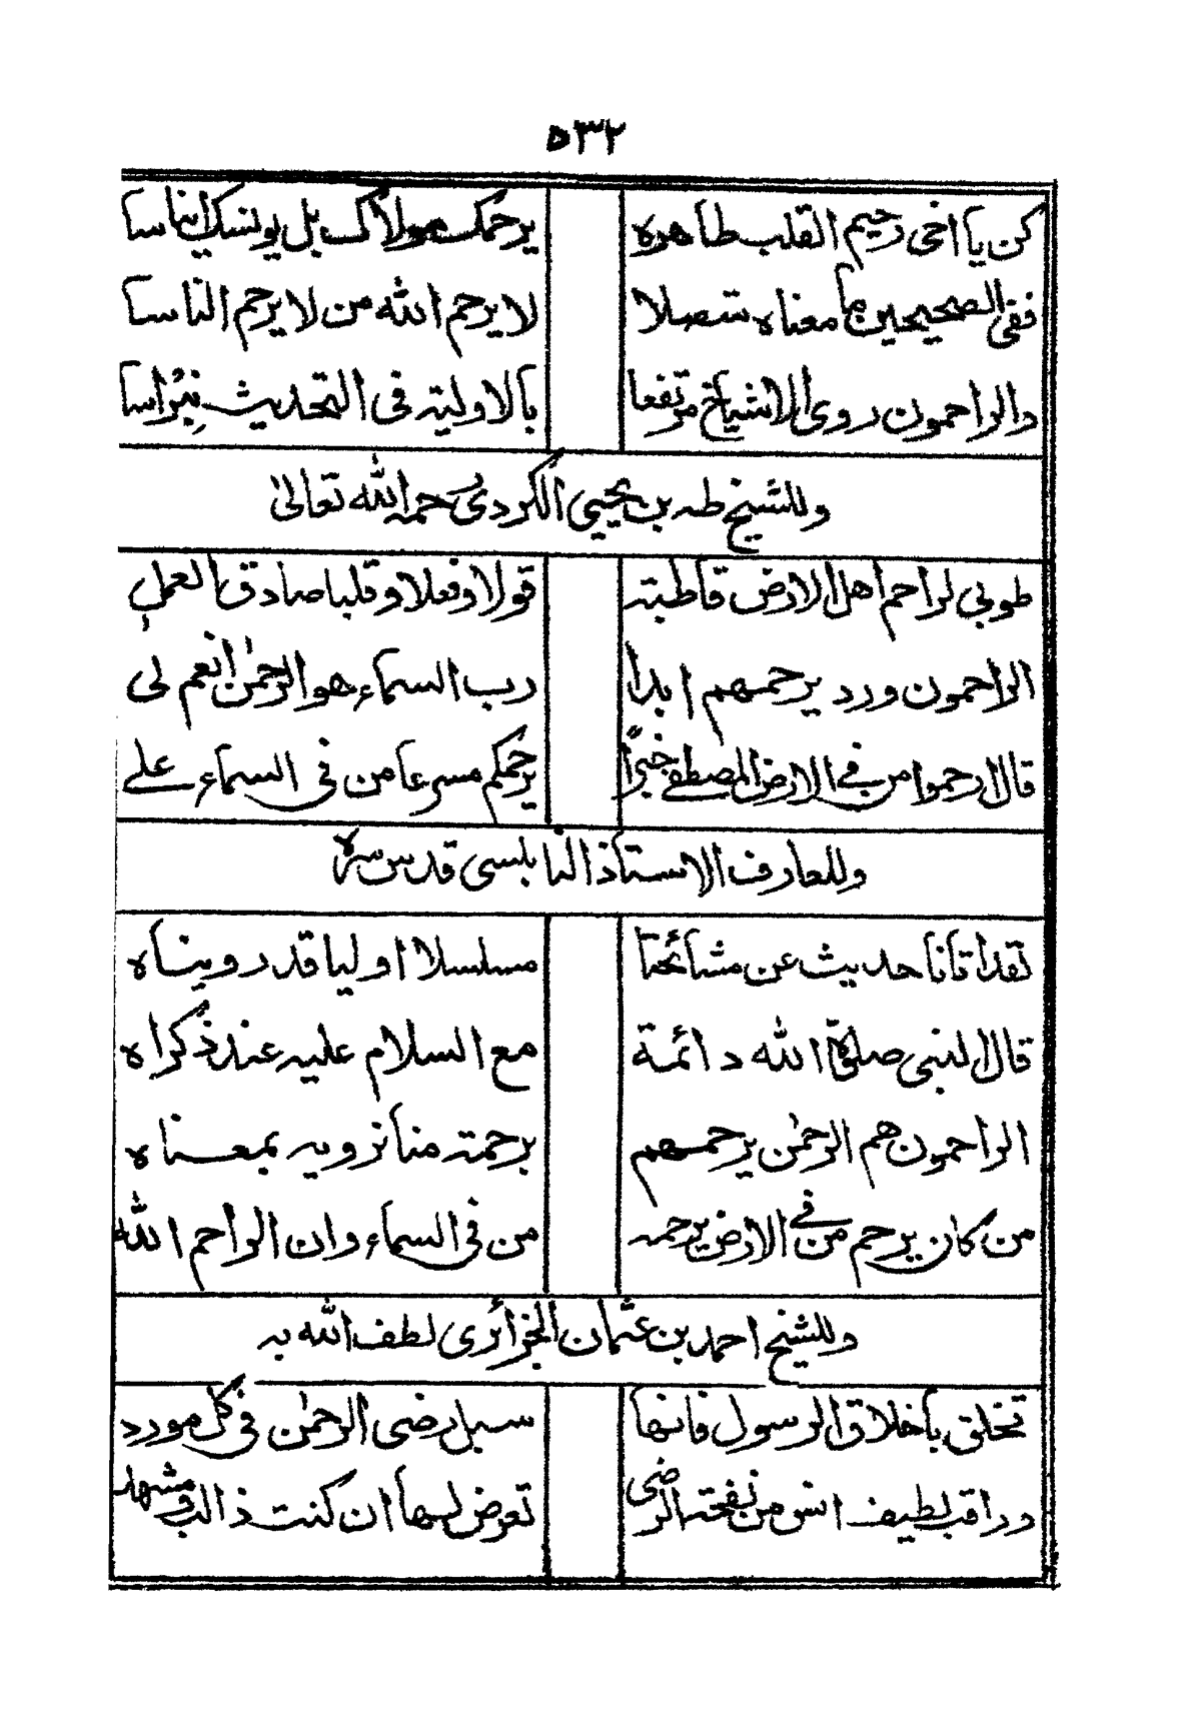 ٥٣٢
كن يا اخى رحيم القلب طاهره يرحمك مولاك بل يونسك ايناسا
ففى الصحيحين ما معناه متصلا لا يرحم الله من لا يرحم الناسا
والراحمون روى الاشياخ مرتفعا بالاولية فى التحديث نِبْراسا
وللشيخ طه بن يحيى الكردى رحمه الله تعالى
طوبى لراحم اهل الارض قاطبة قولا وفعلا وقلبا صادق العمل
الراحمون ورد يرحمهم ابدا رب السماء هو الرحمٰن انعم لى
قال ارحموا من فى الارض المصطفے خبرًا يرحمكم مسرعا من فى السماء علے
وللعارف الاستاذ النابلسى قدس سره
لقد اتانا حديث عن مشائخنا مسلسلا اوليا قد رويناه
قال النبى صلوة الله دائمة مع السلام عليه عند ذكراه
الراحمون هم الرحمٰن يرحمهم برحمة منا نرويه بمعناه
من كان يرحم من فى الارض يرحمه من فى السماء وان الراحم الله
وللشيخ احمد بن عثمان الجزائرى لطف الله به
تخلق باخلاق الرسول فانها سبل رضى الرحمٰن فى كل مورد
وراقب لطيف انس من نفحة الرضى تعرض لها ان كنت ذا مشهد